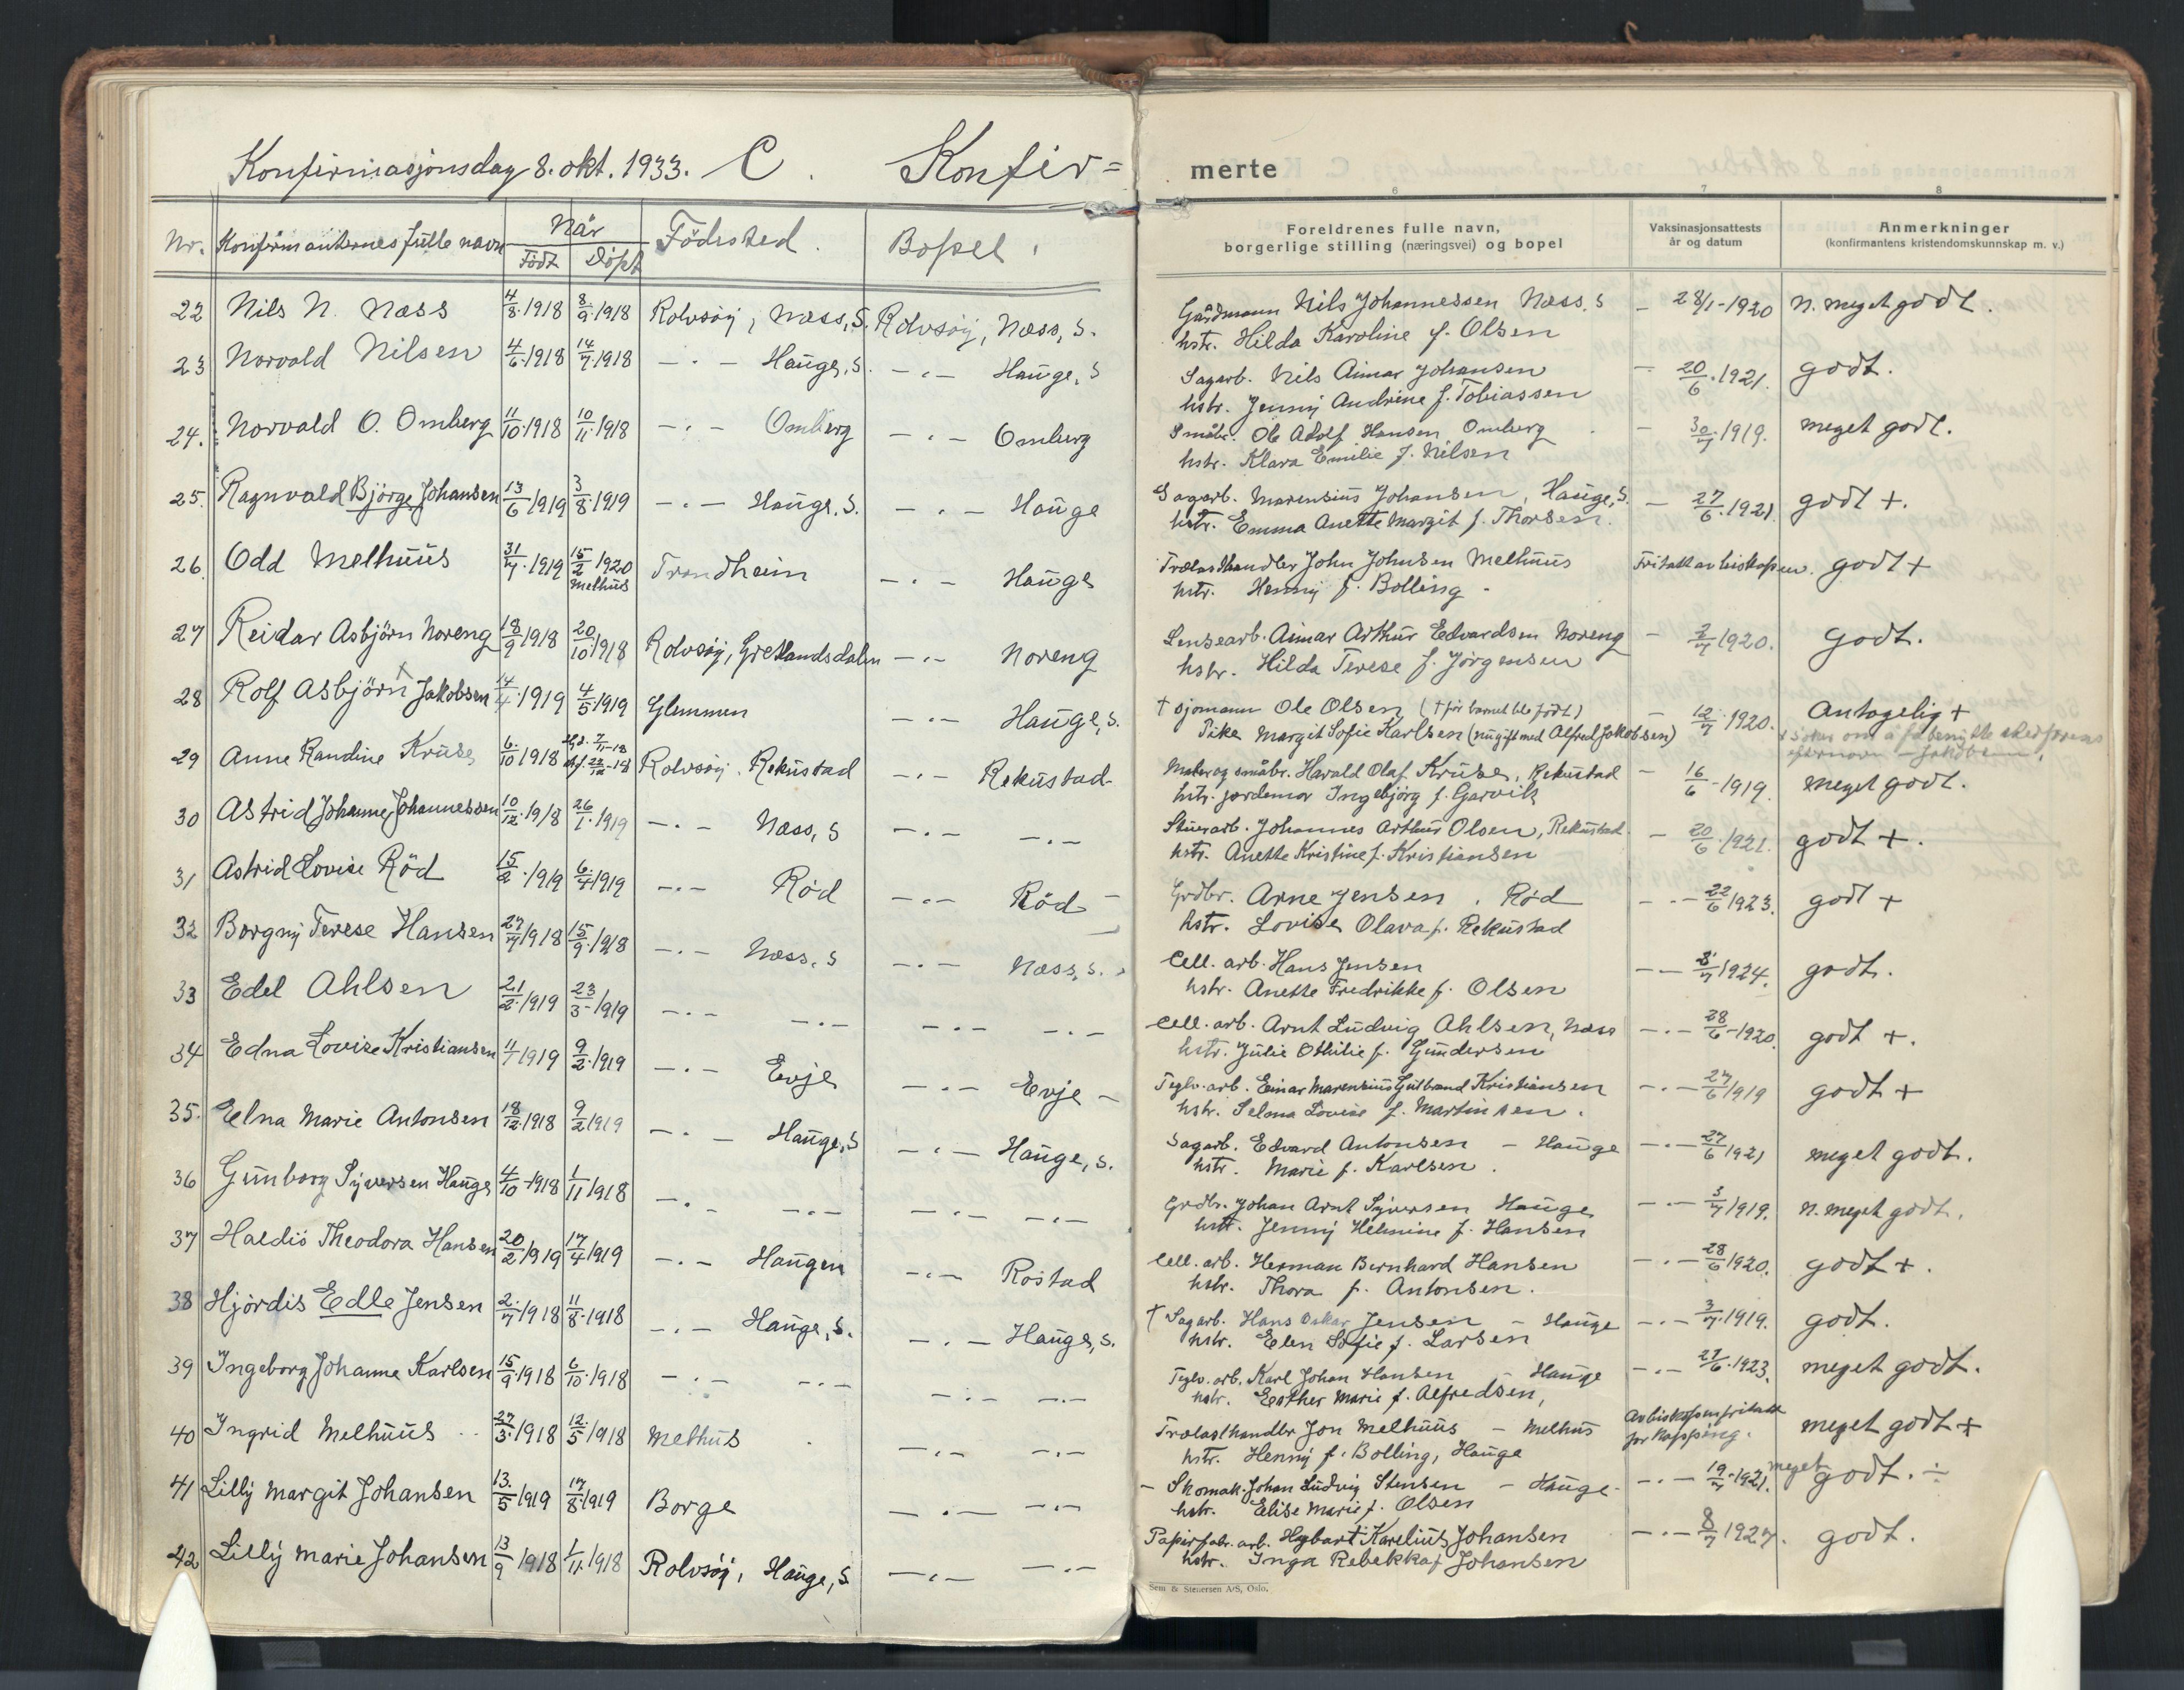 Konfirmasjonsdag 8. okt. 1933. C. Konfir=
merte
6 7 8
Nr. Konfirmanternes fulle navn Når Födested. Bopel.
Födt Döpt
Foreldrenes fulle navn,
borgerlige stilling (næringsvei) og bopel
Vaksinasjonsattests
år og datum
Anmerkninger
(konfirmantens kristendomskunnskap m. v.)
22 Nils N. Næss 4/8 1918 8/9 1918 Rolvsöy, Næss, S. Rolvsöy, Næss, S. Gårdmann Nils Johannessen Næss, S – 28/1-1920 N. meget godt.
hstr. Hilda Karoline f. Olsen
23 Norvald Nilsen 4/6 1918 14/7 1918 –·– Hauge, S. –·– Hauge, S Sagarb. Nils Aimar Johansen – 20/6 1921. godt.
hstr. Jenny Andrine f. Tobiassen
24. Norvald O. Omberg 11/10 1918 10/11 1918 –·– Omberg –·– Omberg Småbr. Ole Adolf Hansen Omberg – 30/7 1919. meget godt.
hstr. Klara Emilie f. Nilsen
25. Ragnvald Bjørge Johansen 13/6 1919 3/8 1919 –·– Hauge, S. –·– Hauge Sagarb. Marensius Johansen, Hauge, S. – 27/6 1921 godt +.
hstr. Emma Anette Margit f. Thorsen.
26. Odd Melhuus 31/7 1919 15/2 1920 Trondheim –·– Hauge Trælasthandler John Johnsen Melhuus Fritatt av biskopen. godt +
Melhus hstr. Henny f. Bolling
27 Reidar Asbjörn Noreng 18/9 1918 20/10 1918 Rolvsöy, Gretlandsdalen –·– Noreng Lensearb. Aimar Arthur Edvardsen Noreng – 2/7 1920. Godt.
hstr. Hilda Terese f. Jörgensen
28 Rolf Asbjörn + Jakobsen 14/4 1919 4/5 1919 Glemmen –·– Hauge, S. † Sjömann Ole Olsen († för barnet ble födt) – 12/7 1920. Antagelig +
Pike Margit Sofie Karlsen (nu gift med Alfred Jakobsen) + söker om å få benytte stedfarens
efternavn – Jakobsen.
29 Anne Randine Kruse 6/10 1918 Hjd. 7/11-18 Rolvsöy, Rekustad –·– Rekustad Maler og småbr. Harald Olaf Kruse, Rekustad – 16/6-1919. meget godt.
hstr. jordemor Ingebjörg f. Garvik
30 Astrid Johanne Johannessen 10/12 1918 26/1 1919 –·– Næss, S –·– –·– Stuerarb. Johannes Arthur Olsen, Rekustad – 20/6 1921. godt +.
hstr. Anette Kristine f. Kristiansen
31 Astrid Lovise Röd 15/2 1919 6/4 1919 –·– Röd –·– Röd – Grdbr. Arne Jensen, Röd –·– 22/6 1923. godt +
hstr. Lovise Olava f. Rekustad
32 Borgny Terese Hansen 27/7 1918 15/9 1918 –·– Næss, S –·– Næss, S. Cell. arb. Hans Jensen –– 8/7 1924. godt.
hstr. Anette Fredrikke f. Olsen
33 Edel Ahlsen 21/2 1919 23/3 1919 –·– –·– –·– –·– Cell. arb. Arnt Ludvig Ahlsen, Næss –·– 28/6-1920. godt +.
hstr. Julie Othilie f. Gundersen
34 Edna Lovise Kristiansen 11/1 1919 9/2 1919 –·– Evje –·– Evje – Teglv. arb. Einar Marensius Gulbrand Kristiansen –·– 27/6 1919 godt +
hstr. Selma Lovise f. Martinsen.
35. Elna Marie Antonsen 18/12 1918 9/2 1919 –·– Hauge, S –·– Hauge, S. Sagarb. Edvard Antonsen – Hauge –·– 27/6 1921 meget godt.
hstr. Marie f. Karlsen.
36 Gunborg Syversen Hauge 4/10-1918 1/11 1918 –·– –·– –·– –·– Grdbr. Johan Arnt Syversen Hauge –·– 3/7 1919. N. meget godt.
hstr. Jenny Helmine f. Hansen
37 Haldis Theodora Hansen 20/2 1919 17/4 1919 –·– Haugen –·– Rostad Cell. arb. Herman Bernhard Hansen –·– 28/6 1920. godt +.
hstr. Thora f. Antonsen.
38 Hjördis Edle Jensen 2/7 1918 11/8 1918 –·– Hauge, S. –·– Hauge, S. † Sagarb. Hans Oskar Jensen – Hauge –·– 3/7 1919. godt.
hstr. Elen Sofie f. Larsen
39 Ingeborg Johanne Karlsen 15/9 1918 6/10 1918 –·– –·– –·– –·– Teglv. arb. Karl Johan Hansen – Hauge –·– 27/6 1923. meget godt.
hstr. Esther Marie f. Alfredsen,
40 Ingrid Melhuus 27/3 1918 12/5 1918 Melhus –·– –·– Trælasthandler Jon Melhuus – Melhus Av biskopen fritatt for kopping. meget godt +
hstr. Henny f. Bolling, Hauge
41 Lilly Margit Johansen 13/5 1919 17/8 1919 Borge –·– –·– – Skomak. Johan Ludvig Stensen – Hauge –·– 19/7 1921. meget godt. ÷
hstr. Elise Marie f. Olsen
42 Lilly Marie Johansen 13/9 1918 1/11 1918 Rolvsöy, Hauge, S –·– –·– Papirfabr. arb. Hybart Karelius Johansen –·– 8/7 1927. godt.
hstr. Inga Rebekka f. Johansen
Sem & Stenersen A/S, Oslo.